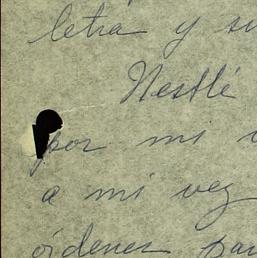 letra y su
Nestlé
por mi v
a mi vez
órdenes par